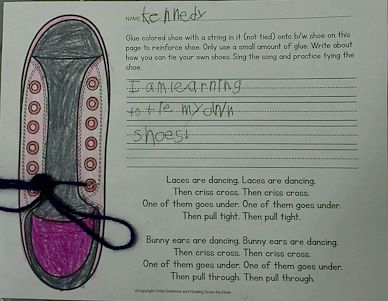 NAME Kennedy
Glue colored shoe with a string in it (not tied) onto b/w shoe on this
page to reinforce shoe. Only use a small amount of glue. Write about
how you can tie your own shoes. Sing the song and practice tying the
shoe.
I am learning
to tie my own
shoes!
Laces are dancing. Laces are dancing.
Then criss cross. Then criss cross.
One of them goes under. One of them goes under.
Then pull tight. Then pull tight.
Bunny ears are dancing. Bunny ears are dancing.
Then criss cross. Then criss cross.
One of them goes under. One of them goes under.
Then pull through. Then pull through.
©Copyright Linda Selamone and Floating Down the River